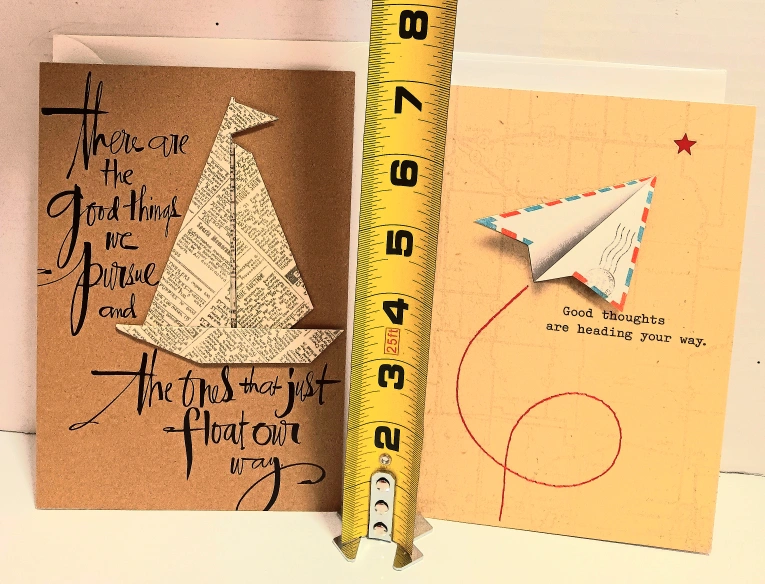 there are
the
good things
we
pursue
and
the ones that just
float our
way
8
7
6
5
4
25ft
3
2
Good thoughts
are heading your way.